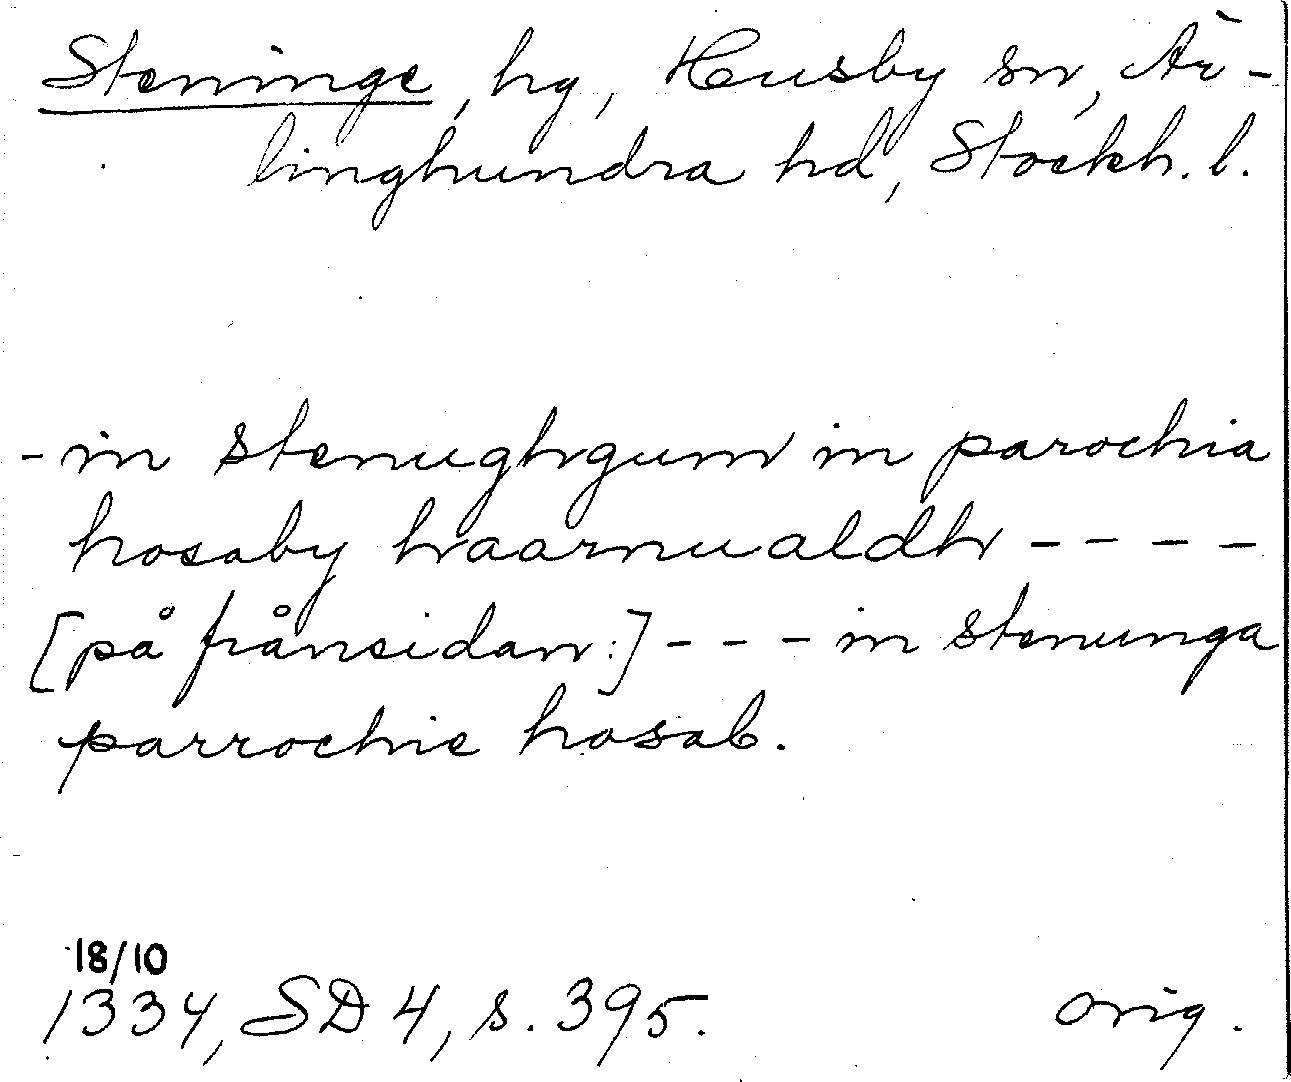 Steninge, hg, Husby sn, Är-
linghundra hd, Stockh. l.
- in stenughgum in parochia
hosaby haarnualdh - - - -
[på frånsidan:] - - - in stenunga
parrochie hosab.
18/10
1334, SD 4, s. 395. orig.